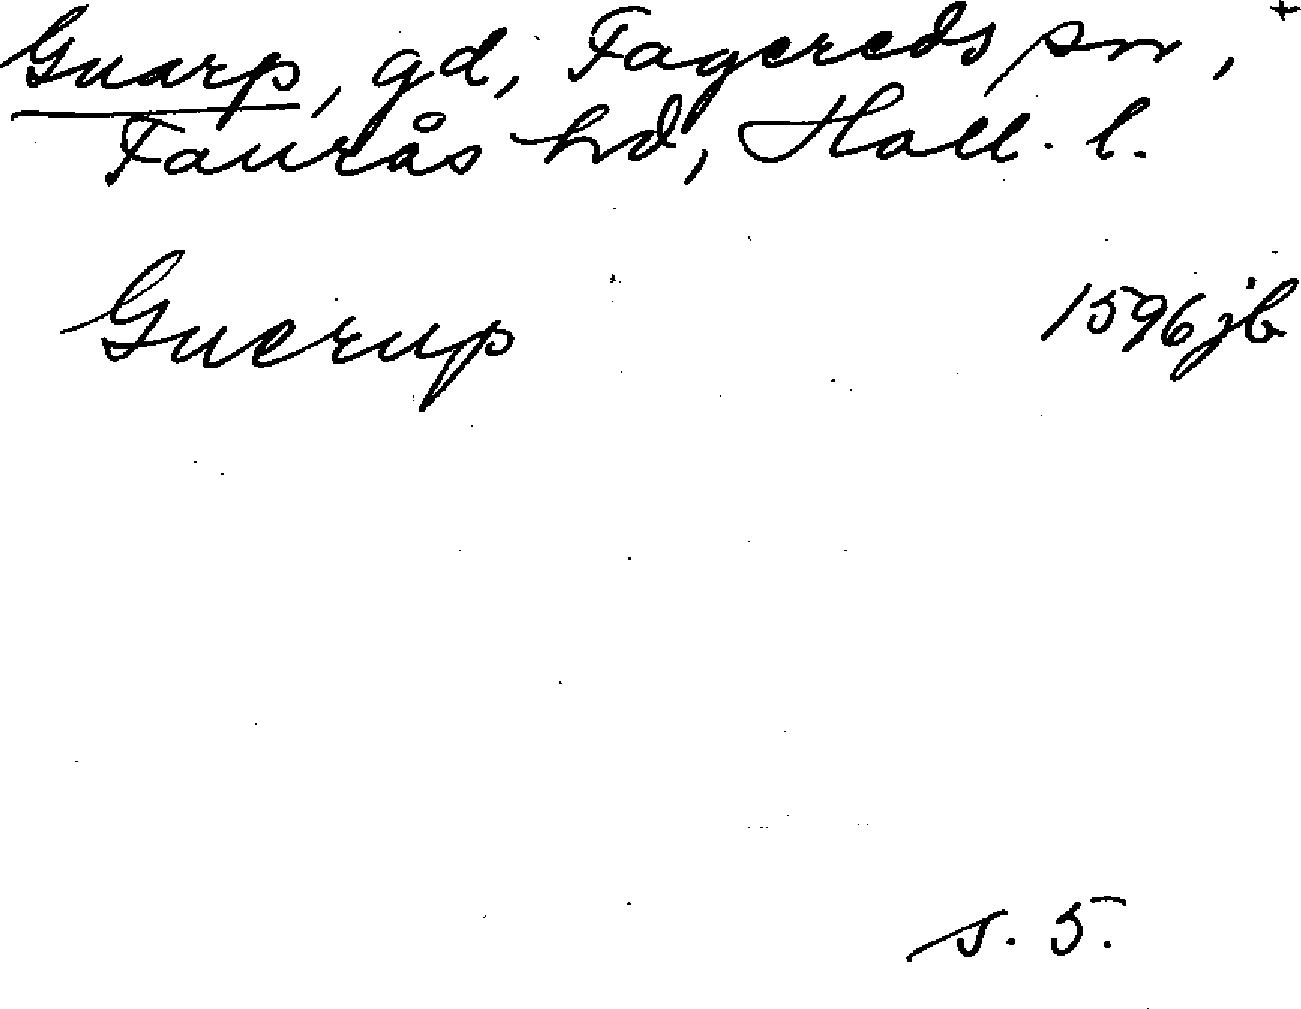 Guarp, gd, Fagereds sn, +
Faurås hd, Hall. l.
Guerup 1596 jb
s. 5.